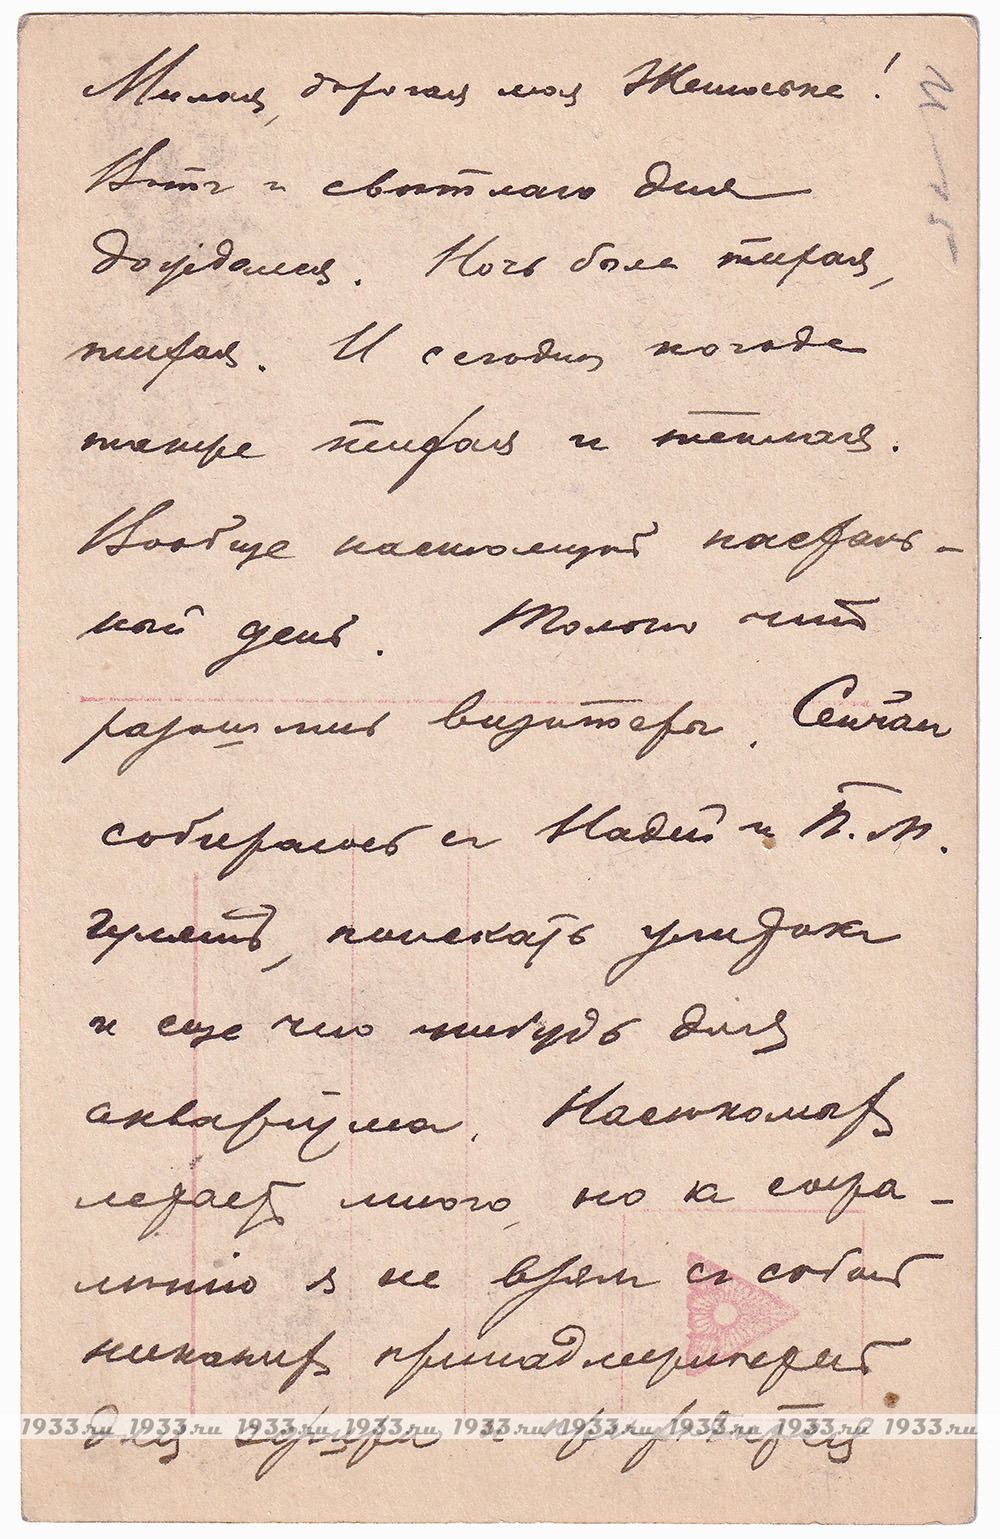 Милая, дорогая моя Женюське!
Вотъ и свѣтлаго дня
дождался. Ночь была тихая,
тихая. И сегодня погода
также тихая и теплая.
Вообще настоящій пасхаль-
ный день. Только что
разошлись визитеры. Сейчас
собираюсь съ Надей и П. М.
гулять, поискать улиток
и еще что нибудь для
акваріума. Насѣкомыхъ
летаетъ много, но къ сожа-
лѣнію я не взялъ съ собой
никакихъ принадлежностей
для
1933.ru 1933.ru 1933.ru 1933.ru 1933.ru 1933.ru 1933.ru 1933.ru 1933.ru